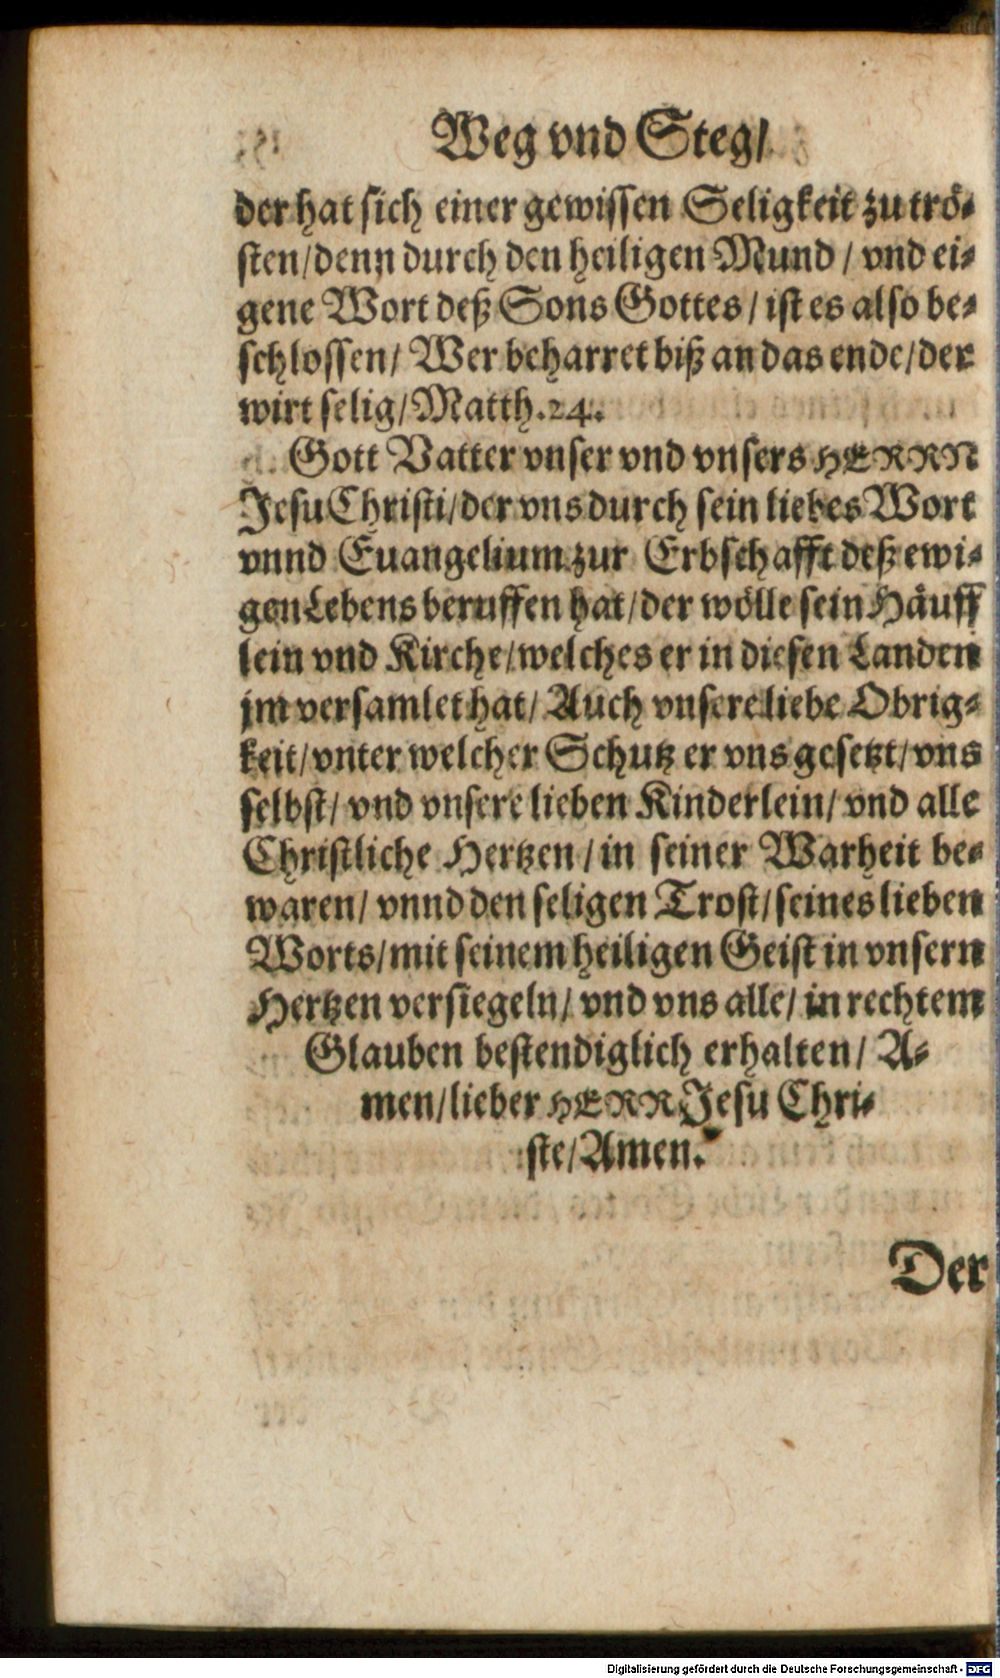 Weg vnd Steg/
der hat sich einer gewissen Seligkeit zu trö-
sten/denn durch den heiligen Mund / vnd ei-
gene Wort deß Sons Gottes / ist es also be-
schlossen/ Wer beharret biß an das ende/der
wirt selig/Matth.24.
Gott Vatter vnser vnd vnsers HERRN
Jesu Christi/der vns durch sein liebes Wort
vnnd Euangelium zur Erbschafft deß ewi-
gen Lebens beruffen hat/der wölle sein Häuff
lein vnd Kirche/welches er in diesen Landen
jm versamlet hat/ Auch vnsere liebe Obrig-
keit/vnter welcher Schutz er vns gesetzt/vns
selbst/ vnd vnsere lieben Kinderlein/ vnd alle
Christliche Hertzen /in seiner Warheit be-
waren/ vnnd den seligen Trost/seines lieben
Worts/mit seinem heiligen Geist in vnsern
Hertzen versiegeln/ vnd vns alle/ in rechtem
Glauben bestendiglich erhalten/ A-
men/lieber HERR Jesu Chri-
ste/Amen.
Der
Digitalisierung gefördert durch die Deutsche Forschungsgemeinschaft - DFG